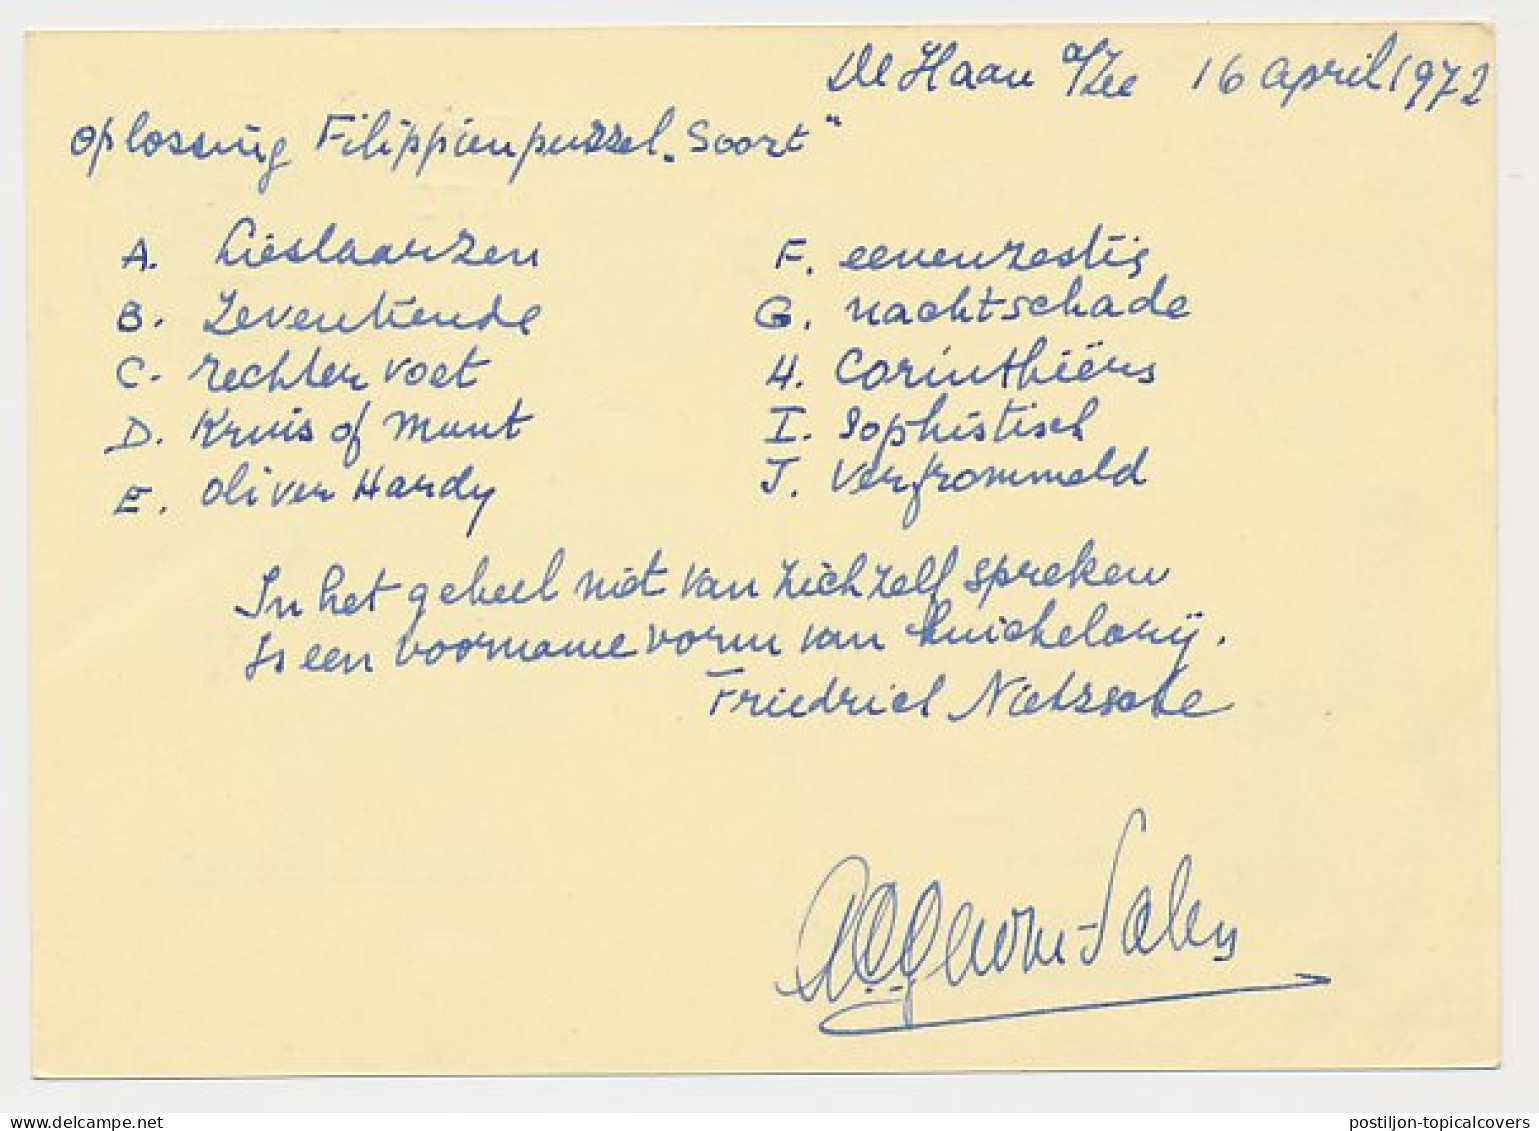 De Haan a/Zee 16 april 1972
oplossing Filippienpuzzel „Soort"
A. Lieslaarzen
B. Zeventiende
C. rechter voet
D. Kruis of Munt
E. Oliver Hardy
F. eenenzestig
G. nachtschade
H. Corinthiërs
I. Sophistisch
J. Verfrommeld
In het geheel niet van zichzelf spreken
Is een voorname vorm van huichelarij.
Friedrich Nietzsche
postiljon-topicalcovers